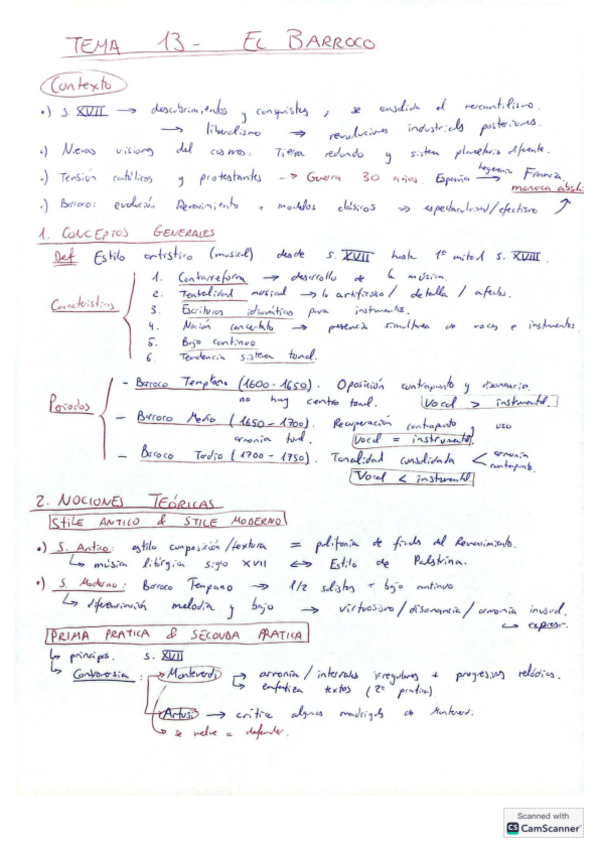 TEMA 13 - EL BARROCO
Contexto
•) S. XVII → descubrimientos y conquistas, se consolida el mercantilismo.
→ liberalismo → revoluciones industriales posteriores.
•) Nuevas visiones del cosmos. Tierra redonda y sistem planetario diferente.
•) Tensión católicos y protestantes -> Guerra 30 años. España → hegemonía Francia
monarca absol
•) Barroco: evolución Renacimiento + modelos clásicos => espectacularidad/efectivo
1. CONCEPTOS GENERALES
Def Estilo artístico (musical) desde s. XVII hasta 1ª mitad s. XVIII.
Características
1. Contrarreforma → desarrollo de la música.
2. Teatralidad musical → lo artificioso / detalle / afectos.
3. Escritura idiomática para instrumentos.
4. Noción concertato → presencia simultánea de voces e instrumentos.
5. Bajo continuo
6. Tendencia sistema tonal.
Periodos
- Barroco Temprano (1600-1650). Oposición contrapunto y disonancia.
no hay centro tonal. Vocal > instrumental.
- Barroco Medio (1650-1700). Recuperación contrapunto y uso
armonía tonal. Vocal = instrumental.
- Barroco Tardío (1700-1750). Tonalidad consolidada < armonía
contrapunto.
Vocal < instrumental.
2. NOCIONES TEÓRICAS
STILE ANTICO & STILE MODERNO
•) S. Antico: estilo composición/textura = polifonía de finales del Renacimiento.
↳ música litúrgica siglo XVII ↔ Estilo de Palestrina.
•) S. Moderno: Barroco Temprano → 1/2 solistas + bajo continuo
↳ diferenciación melodía y bajo → virtuosismo / disonancia / armonía inusual.
↳ expresar.
PRIMA PRATICA & SECONDA PRATICA
↳ principios. s. XVII
↳ Controversia: Monteverdi → armonía / intervalos irregulares + progresiones melódicas.
→ enfatiza textos (2ª pratica).
Artusi → critica algunos madrigales de Monteverdi.
↳ se vuelve a defender.
Scanned with
CS CamScanner